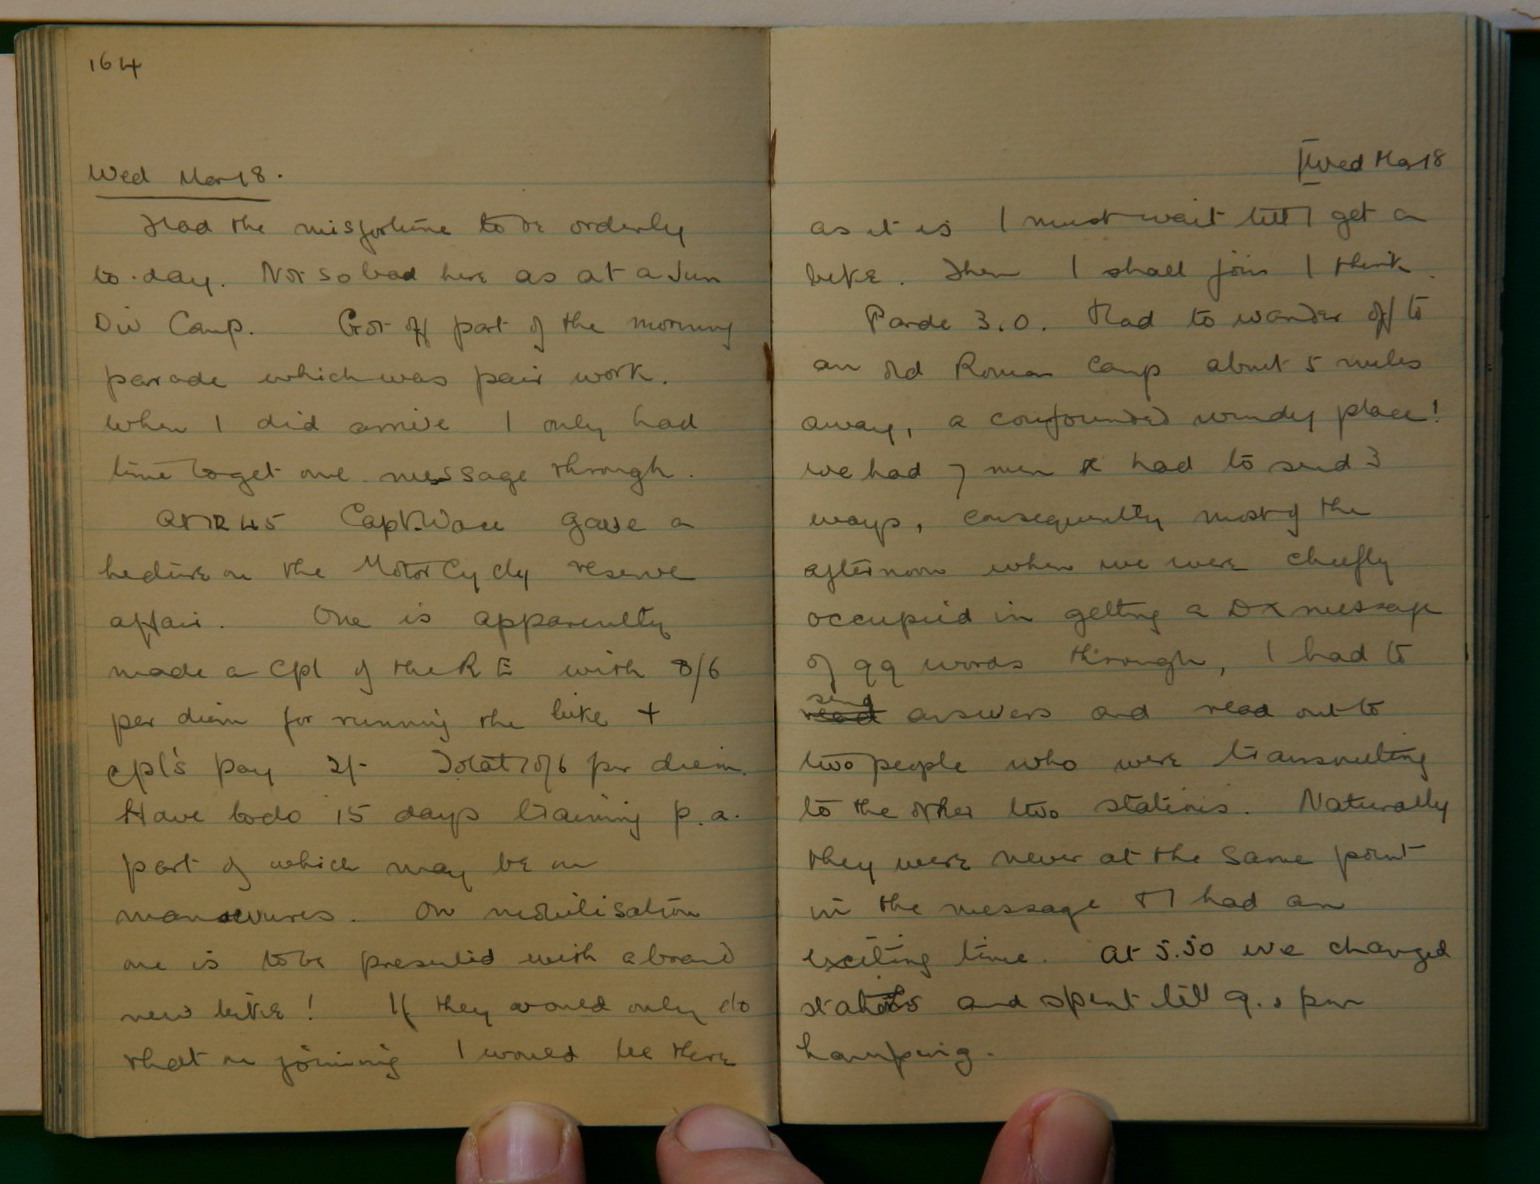 164
Wed Mar 18.
Had the misfortune to be orderly
to-day. Not so bad here as at a Jun
Div Camp. Got off part of the morning
parade which was pair work.
When I did arrive I only had
time to get one message through.
At 12 45 Capt. Wace gave a
lecture on the Motor Cycle reserve
affair. One is apparently
made a Cpl of the R E with 8/6
per diem for running the bike +
cpl's pay 2/- Total 10/6 per diem.
Have to do 15 days training p.a.
part of which may be on
manoevures. On mobilisation
one is to be presented with a brand
new bike! If they would only do
that on joining I would be there
Wed Mar 18
as it is I must wait till I get a
bike. Then I shall join I think.
Parde 3.0. Had to wander off to
an old Roman Camp about 5 miles
away, a confounded windy place!
we had 7 men & had to send 3
ways, consequently most of the
afternoon when we were chiefly
occupied in getting a DX message
of 99 words through, I had to
send
read answers and read out to
two people who were transmitting
to the other two stations. Naturally
they were never at the same point
in the message & I had an
exciting time. At 5.50 we changed
stations and spent till 9.0 pm
lamping.